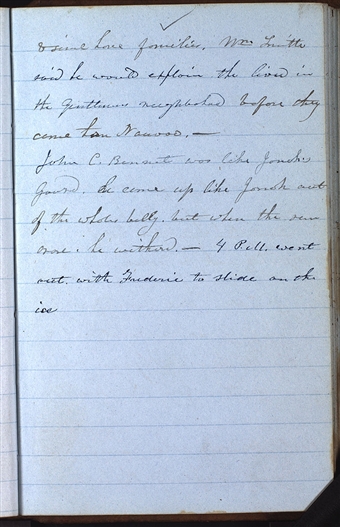 & sival have families. Wm Smith
said he would explain the lives in
the gentlemens neighborhood before they
came to Nauvoo. —
John C. Bennett was like Jonah's
gourd. he came up like Jonah out
of the whales belly. but when the sun
arose. he withered. — 4 P.M. went
out with Frederic to slide on the
ice